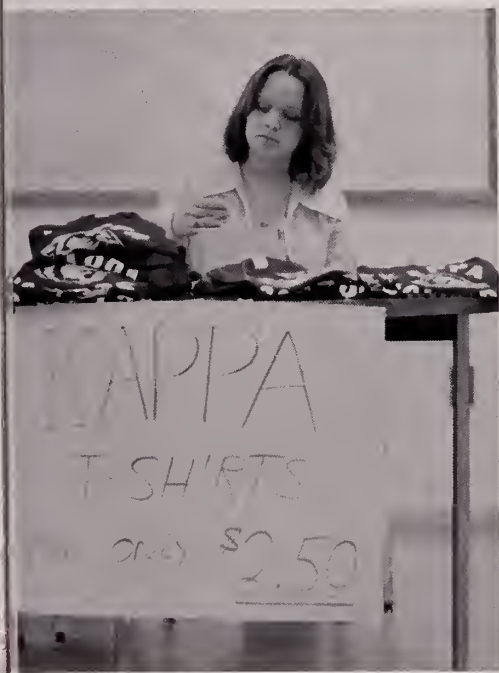 KAPPA
T-SHIRTS
only $2.50